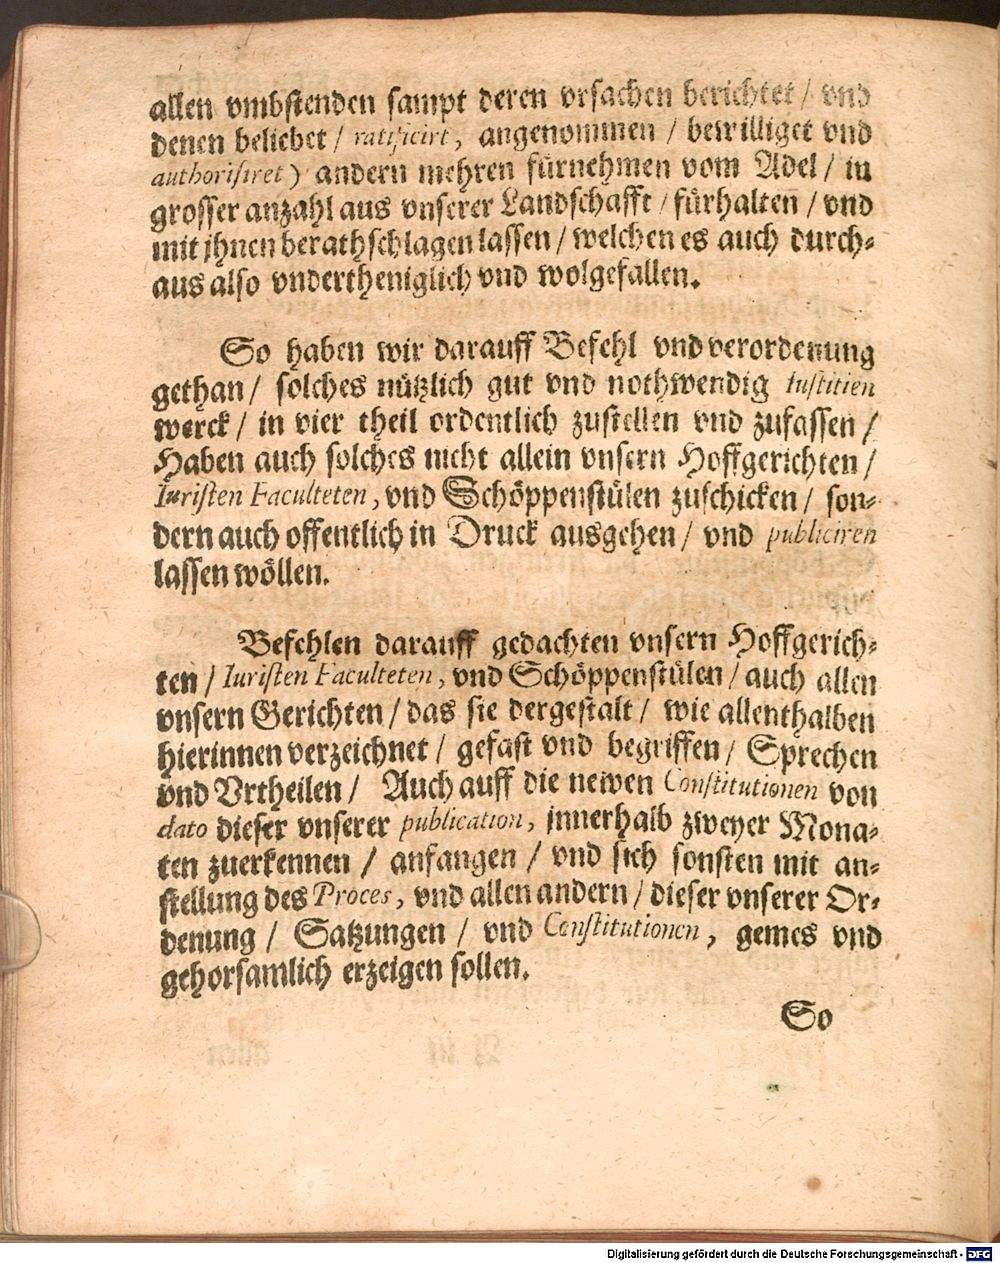 allen vmbstenden sampt deren vrsachen berichtet / vnd
denen beliebet / ratificirt, angenommen / bewilliget vnd
authorisiret ) andern mehren fürnehmen vom Adel / in
grosser anzahl aus vnserer Landschafft / fürhalten / vnd
mit jhnen berathschlagen lassen / welchen es auch durch-
aus also vndertheniglich vnd wolgefallen.
So haben wir darauff Befehl vnd verordenung
gethan / solches nützlich gut vnd nothwendig Iustitien
werck / in vier theil ordentlich zustellen vnd zufassen /
Haben auch solches nicht allein vnsern Hoffgerichten /
Iuristen Faculteten, vnd Schöppenstülen zuschicken / son-
dern auch offentlich in Druck ausgehen / vnd publiciren
lassen wöllen.
Befehlen darauff gedachten vnsern Hoffgerich-
ten / Iuristen Faculteten, vnd Schöppenstülen / auch allen
vnsern Gerichten / das sie dergestalt / wie allenthalben
hierinnen verzeichnet / gefast vnd begriffen / Sprechen
vnd Vrtheilen / Auch auff die newen Constitutionen von
dato dieser vnserer publication, jnnerhalb zweyer Mona-
ten zuerkennen / anfangen / vnd sich sonsten mit an-
stellung des Proces, vnd allen andern / dieser vnserer Or-
denung / Satzungen / vnd Constitutionen, gemes vnd
gehorsamlich erzeigen sollen.
So
Digitalisierung gefördert durch die Deutsche Forschungsgemeinschaft - DFG